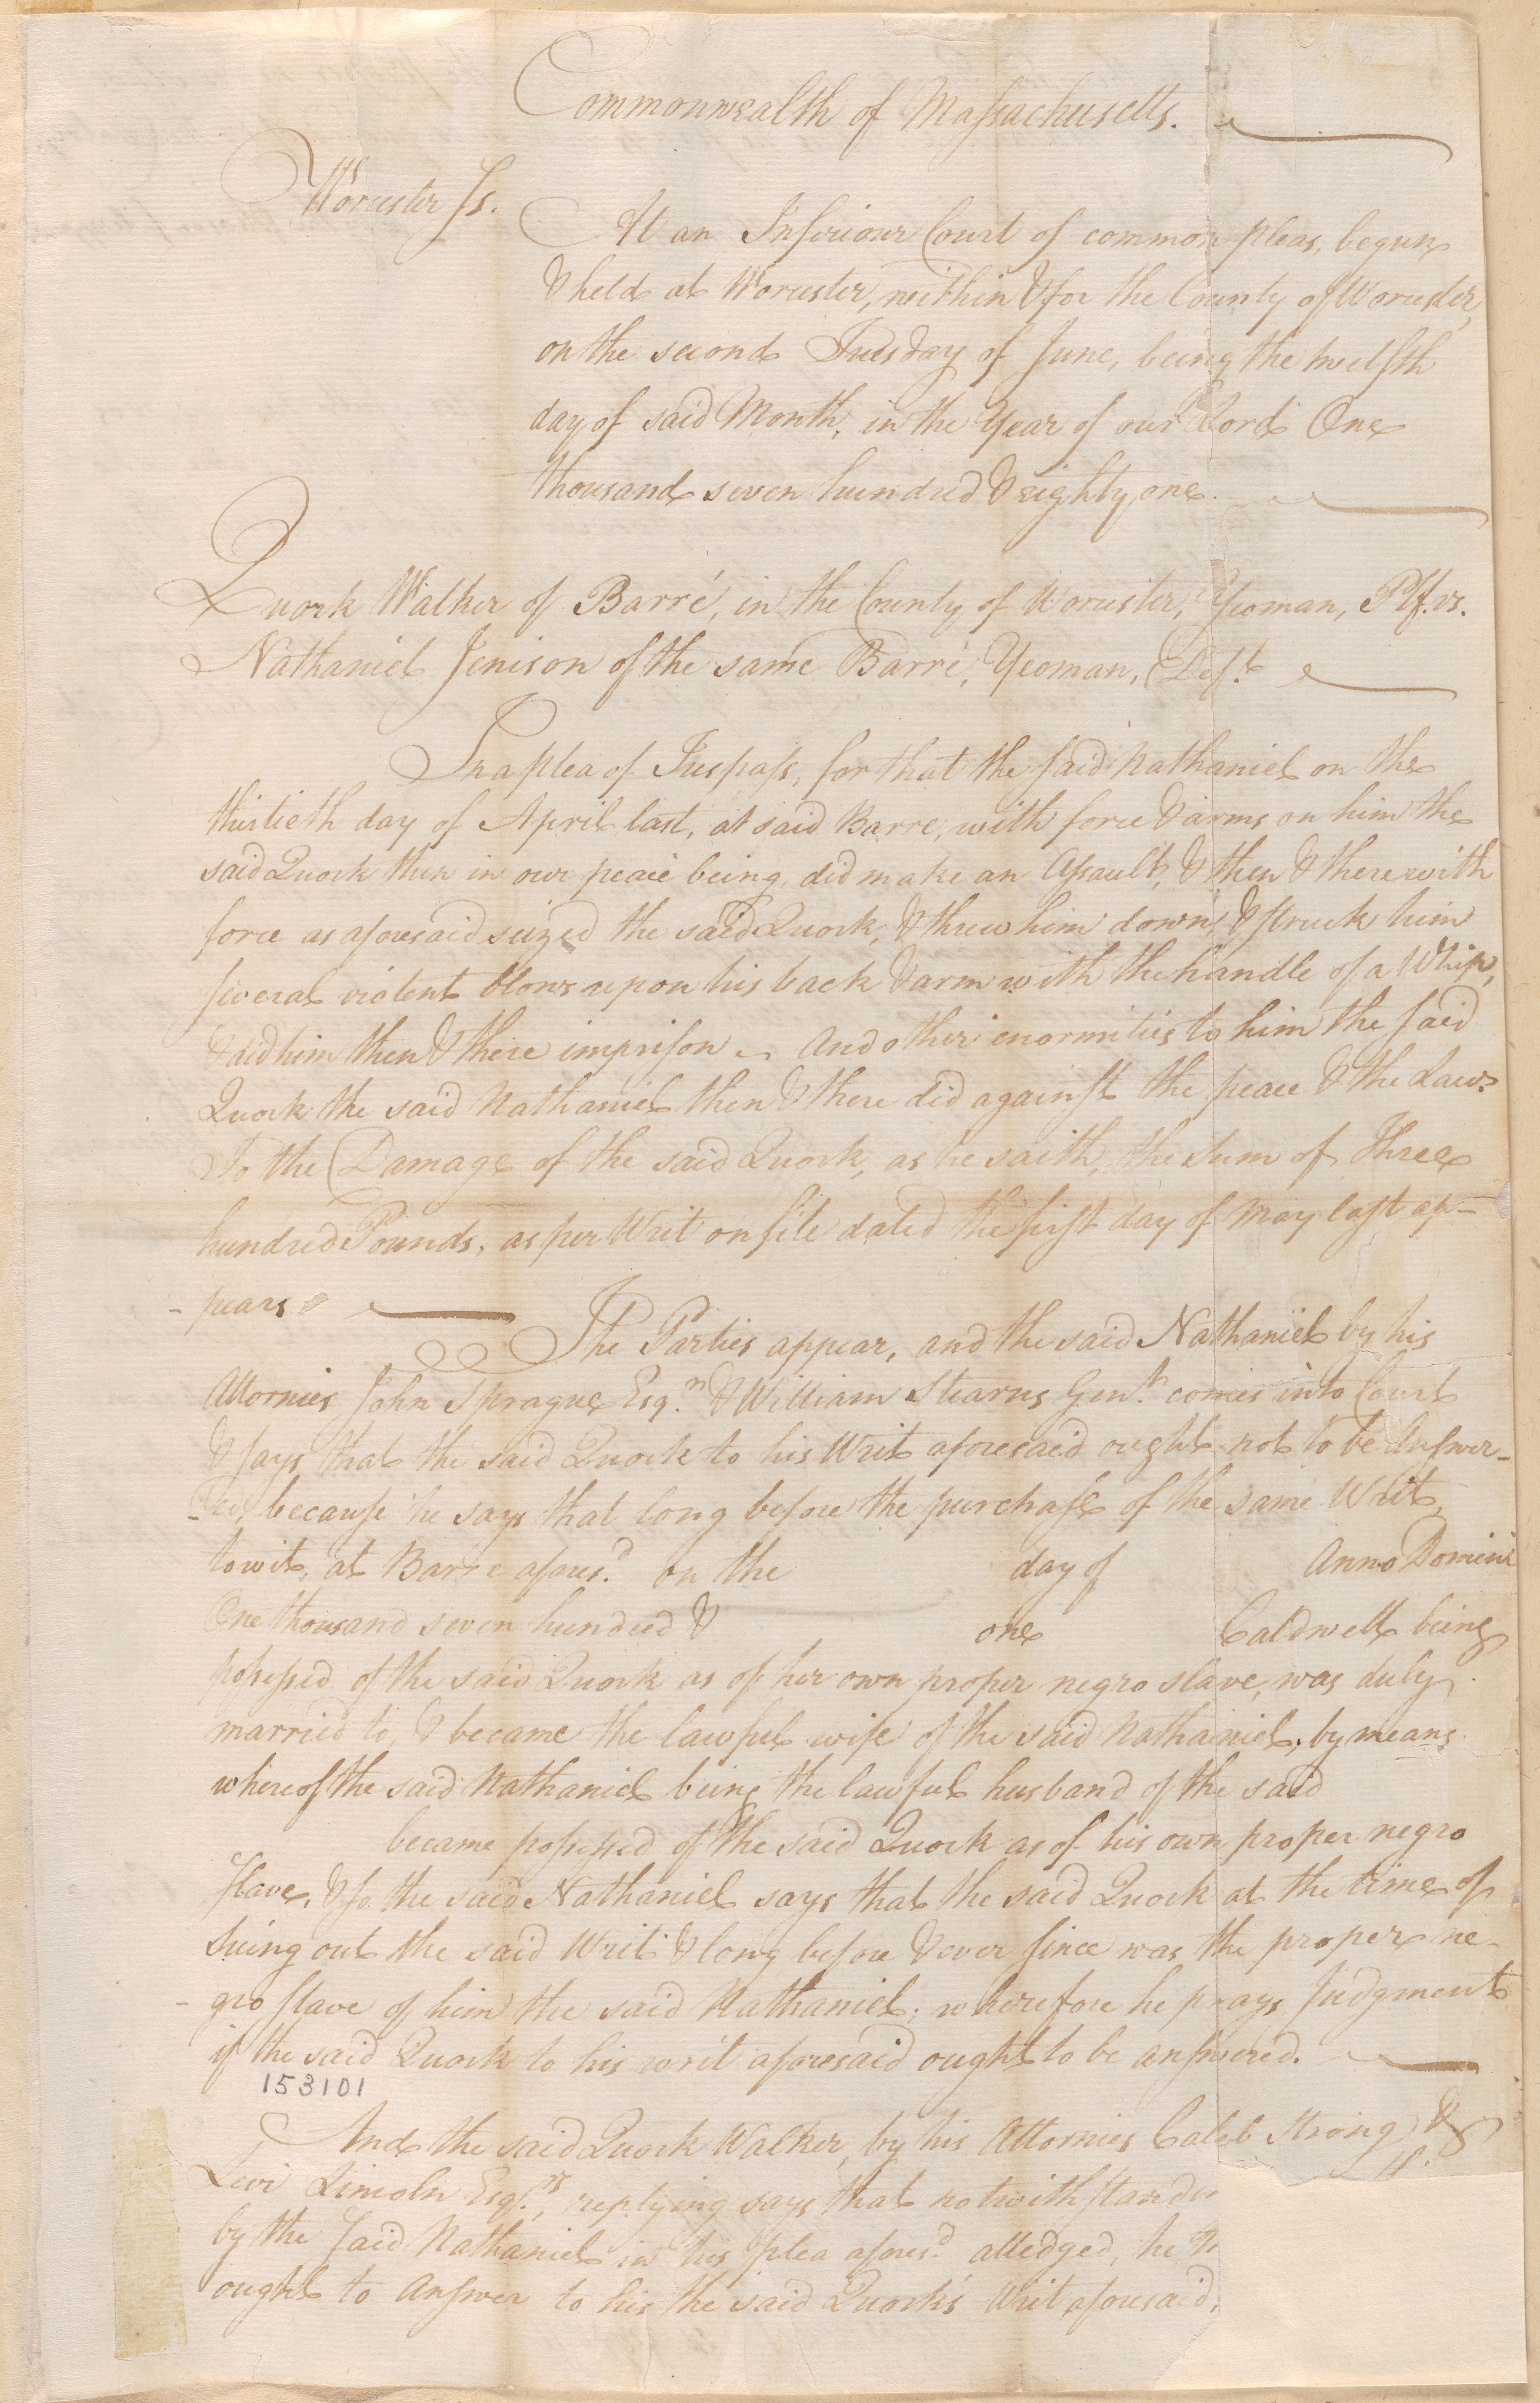 Commonwealth of Massachusetts.
Worcester Ss.
At an Inferiour Court of common pleas, begun
& held at Worcester, within & for the County of Worcester,
on the second Tuesday of June, being the twelfth
day of said Month, in the Year of our Lord One
thousand seven hundred & eighty one.
Quork Walker of Barré, in the County of Worcester, Yeoman, Plf. vs.
Nathaniel Jenison of the same Barré, Yeoman, Def.t
In a plea of Trespass, for that the said Nathaniel on the
thirtieth day of April last, at said Barre, with force & arms on him the
said Quork then in our peace being, did make an Assault, & then & there with
force as aforesaid seized the said Quork, & threw him down, & struck him
several violent blows upon his back & arm with the handle of a Whip,
& did him then & there imprison – And other enormities to him the said
Quork the said Nathaniel then & there did against the peace & the Laws
To the Damage of the said Quork, as he saith, the Sum of Three
hundred Pounds, as per Writ on file dated the first day of May last ap-
-pears
The Parties appear, and the said Nathaniel by his
Attornies John Sprague Esq.r & William Stearns Gen.t comes into Court
& says that the said Quork to his Writ aforesaid ought not to be Answer-
-ed, because he says that long before the purchase of the same Writ,
to wit, at Barre afores.d on the day of Anno Domini
One thousand seven hundred & one Caldwell being
possessed of the said Quork as of her own proper negro slave, was duly
married to, & became the lawful wife of the said Nathaniel; by means
whereof the said Nathaniel being the lawful husband of the said
became possessed of the said Quork as of his own proper negro
slave, & so the said Nathaniel says that the said Quork at the time of
suing out the said Writ & long before & ever since was the proper ne-
-gro slave of him the said Nathaniel; wherefore he prays Judgment
if the said Quork to his writ aforesaid ought to be answered.
153101
And the said Quork Walker, by his Attornies Caleb Strong &
Levi Lincoln Esq.rs, replying says that notwithstandin
by the said Nathaniel in his plea afores.d alledged, he
ought to Answer to his the said Quork's Writ aforesaid,